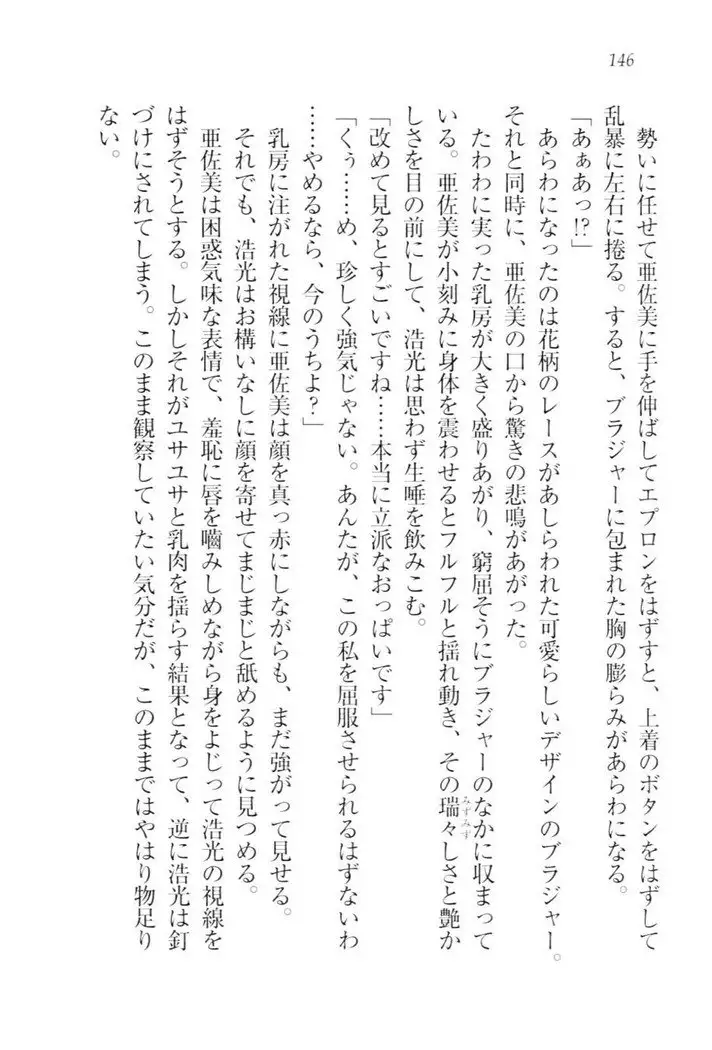 146
勢いに任せて亜佐美に手を伸ばしてエプロンをはずすと、上着のボタンをはずして
乱暴に左右に捲る。すると、ブラジャーに包まれた胸の膨らみがあらわになる。
「あぁあっ!?」
あらわになったのは花柄のレースがあしらわれた可愛らしいデザインのブラジャー。
それと同時に、亜佐美の口から驚きの悲鳴があがった。
たわわに実った乳房が大きく盛りあがり、窮屈そうにブラジャーのなかに収まって
いる。亜佐美が小刻みに身体を震わせるとフルフルと揺れ動き、その瑞々しさと艶か
みずみず
しさを目の前にして、浩光は思わず生唾を飲みこむ。
「改めて見るとすごいですね……本当に立派なおっぱいです」
「くぅ……め、珍しく強気じゃない。あんたが、この私を屈服させられるはずないわ
……やめるなら、今のうちよ?」
乳房に注がれた視線に亜佐美は顔を真っ赤にしながらも、まだ強がって見せる。
それでも、浩光はお構いなしに顔を寄せてまじまじと舐めるように見つめる。
亜佐美は困惑気味な表情で、羞恥に唇を噛みしめながら身をよじって浩光の視線を
はずそうとする。しかしそれがユサユサと乳肉を揺らす結果となって、逆に浩光は釘
づけにされてしまう。このまま観察していたい気分だが、このままではやはり物足り
ない。